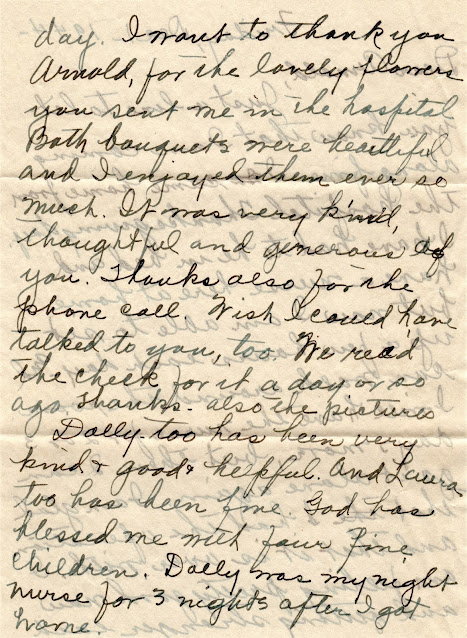 day. I want to thank you
Arnold, for the lovely flowers
you sent me in the hospital
Both bouquets were beautiful
and I enjoyed them ever so
much. It was very kind,
thoughtful and generous of
you. Thanks also for the
phone call. Wish I could have
talked to you, too. We rec'd
the check for it a day or so
ago. Thanks. also the pictures
Dolly too has been very
kind & good & helpful. And Laura
too has been fine. God has
blessed me with four fine
children. Dolly was my night
nurse for 3 nights after I got
home.